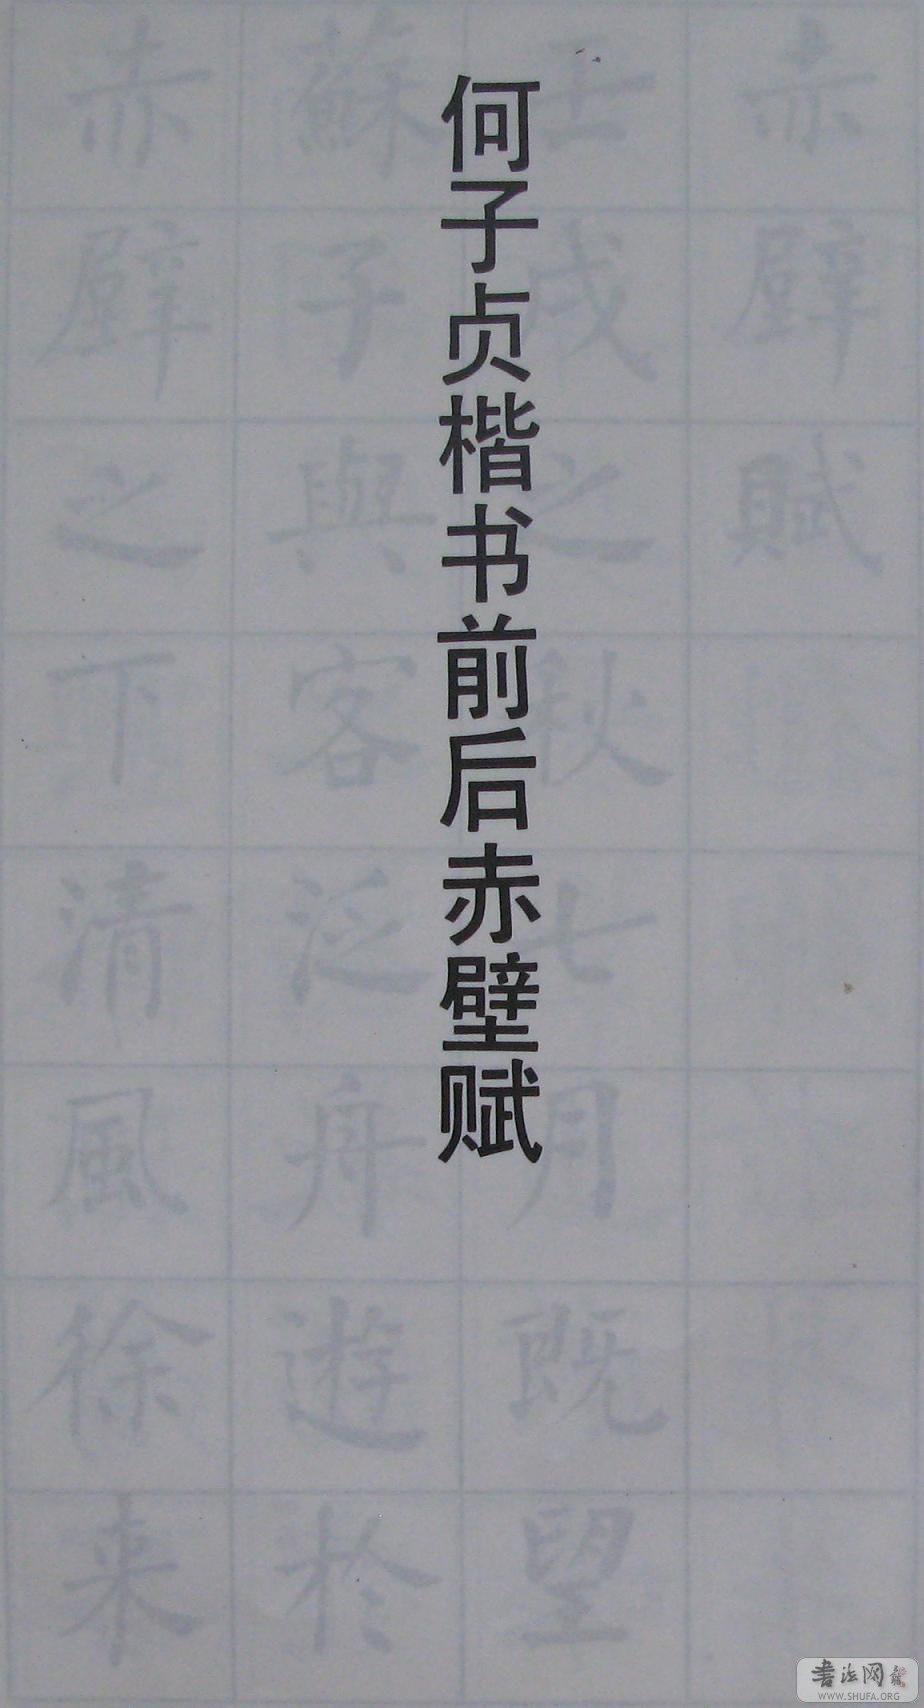 何子贞楷书前后赤壁赋
赤壁賦
壬戌之秋七月既望
蘇子與客泛舟遊於
赤壁之下清風徐来
書法网
WWW.SHUFA.ORG